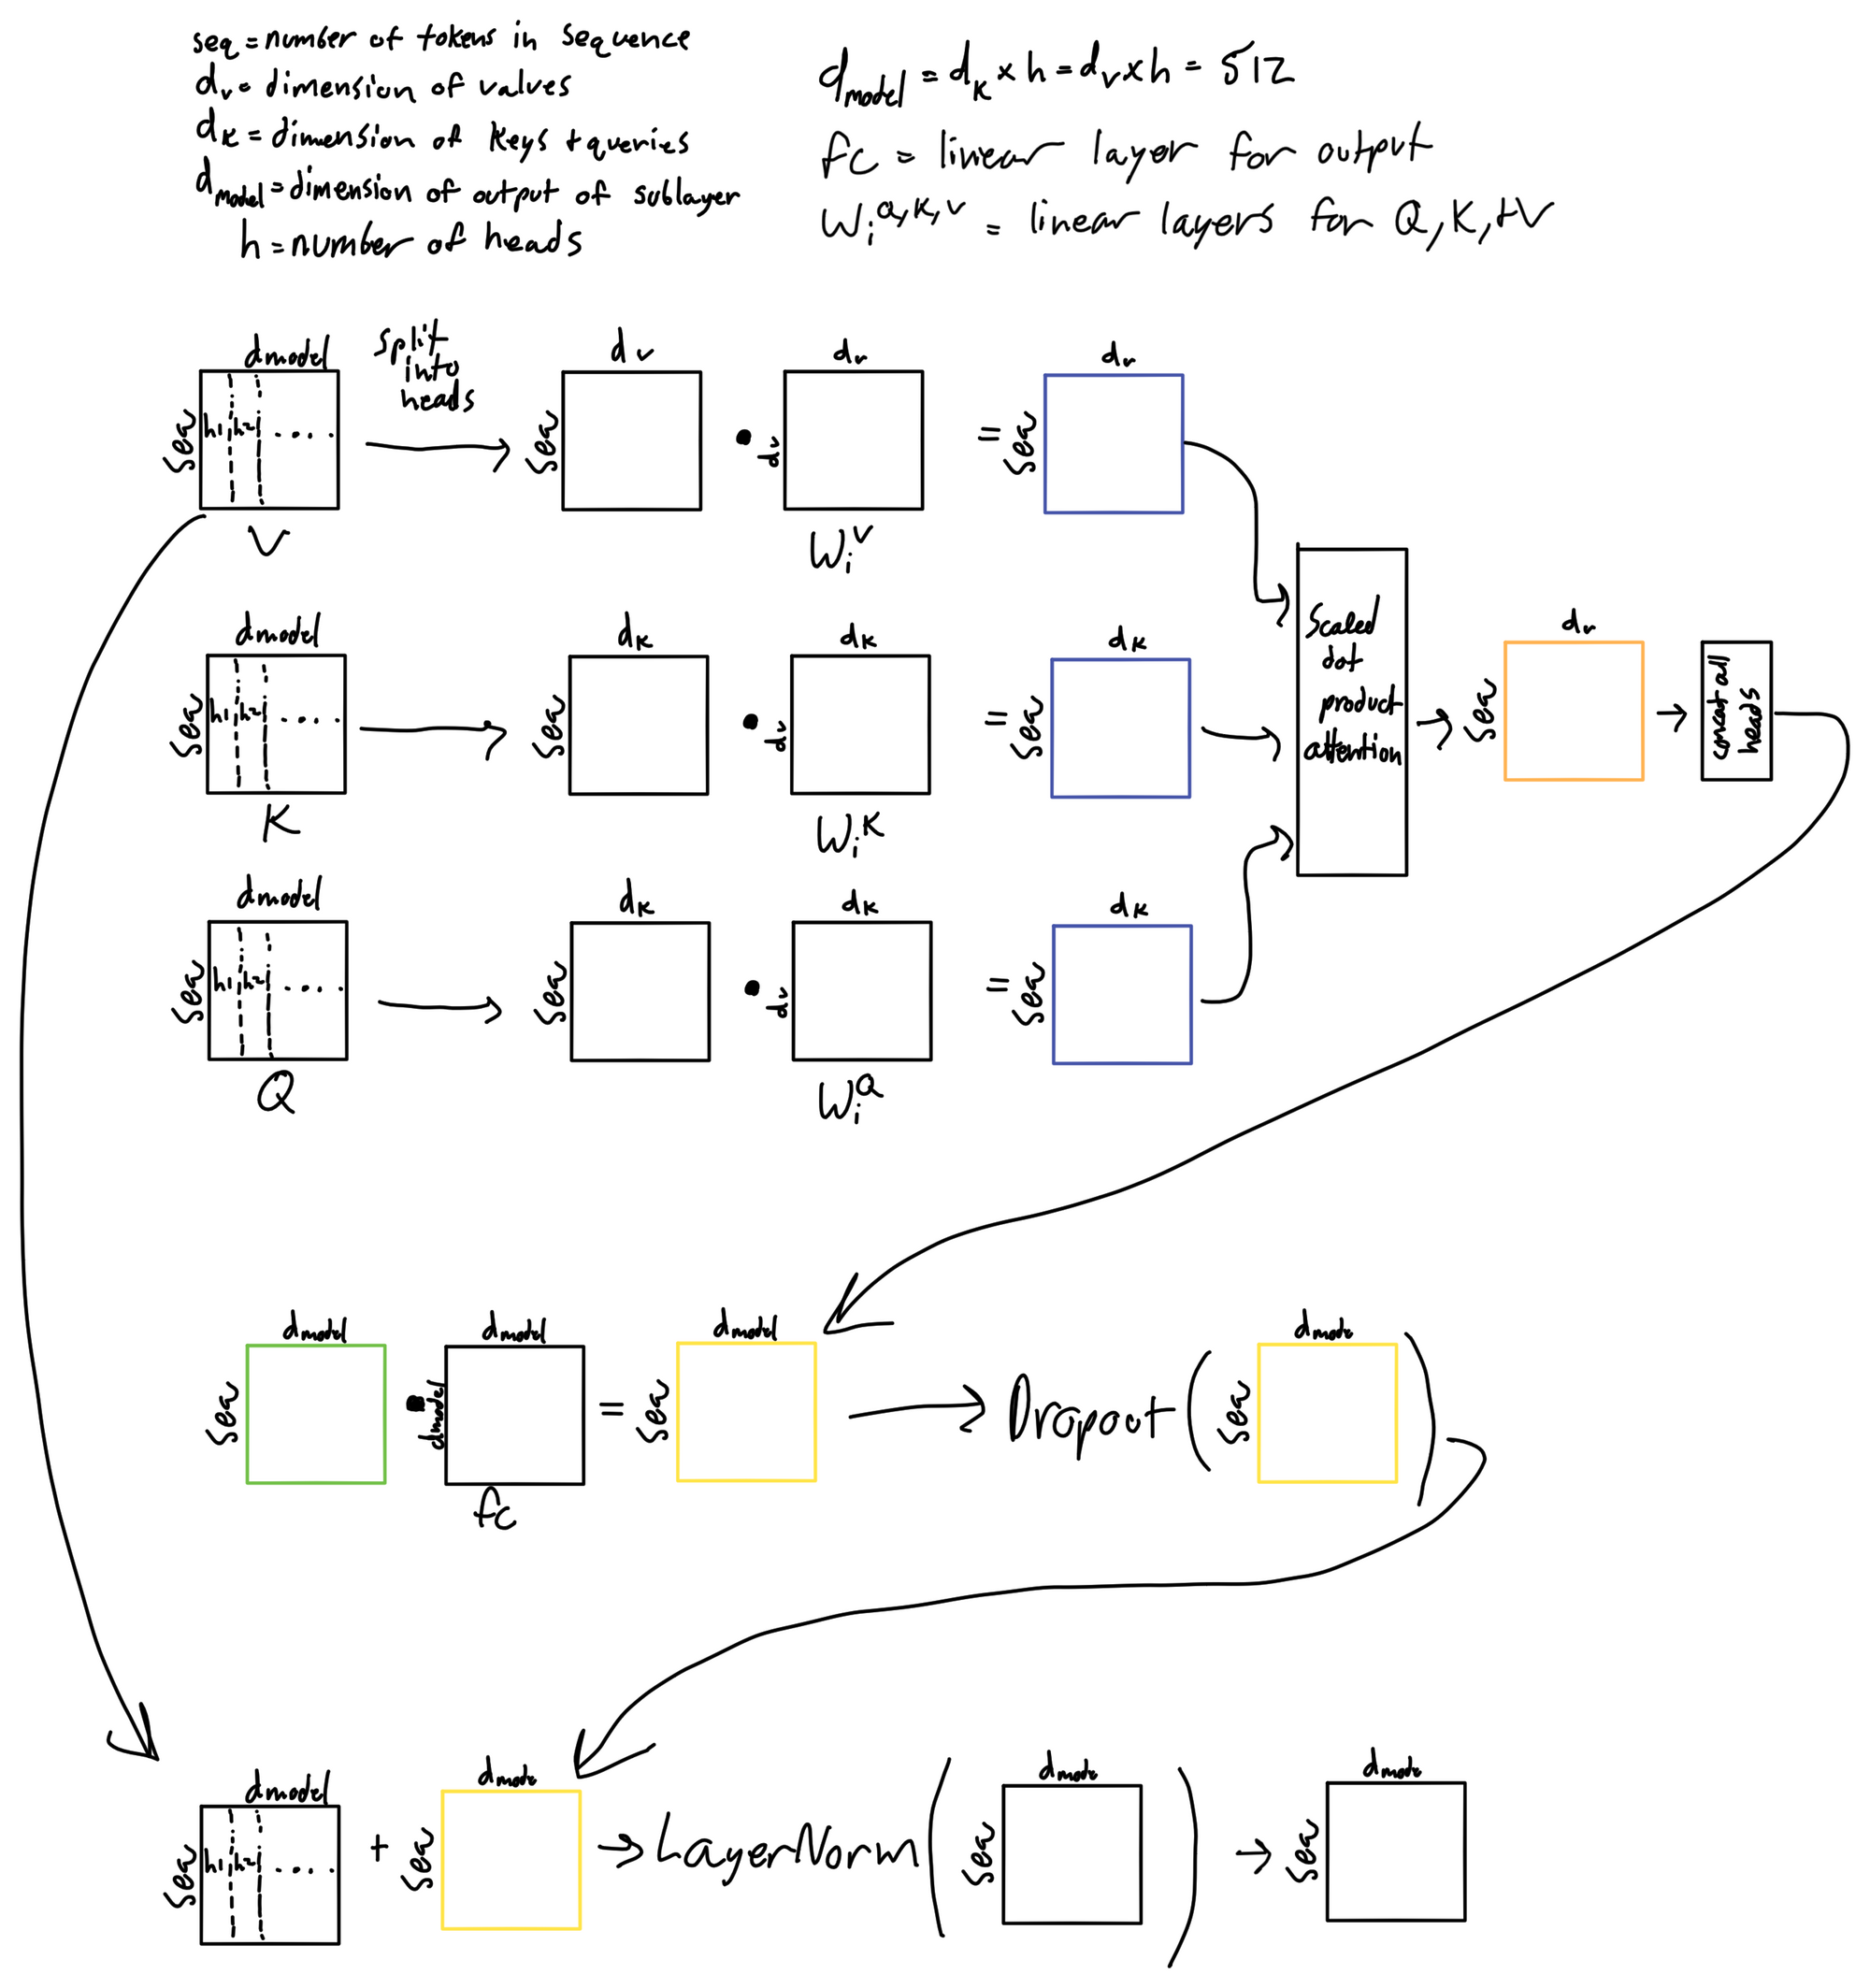 seq = number of tokens in sequence
dv = dimension of values
dk = dimension of keys + queries
dmodel = dimension of output of sublayer
h = number of heads
dmodel = dk x h = dv x h = 512
fc = linear layer for output
Wi Q,K,V = linear layers for Q, K, + V
dmodel
split
into
heads
dv
dv
dv
seq
h1
h2
....
seq
dv
=
seq
V
Wi V
dmodel
dk
dk
dk
seq
h1
h2
....
seq
dv
=
seq
K
Wi K
dmodel
dk
dk
dk
seq
h1
h2
....
seq
dv
=
seq
Q
Wi Q
Scaled
dot
product
attention
dv
seq
concat all
heads
dmodel
dmodel
dmodel
dmode
seq
dmodel
=
seq
Dropout (
seq
)
fc
dmodel
dmode
dmode
dmode
seq
h1
h2
....
+
seq
LayerNorm (
seq
)
seq